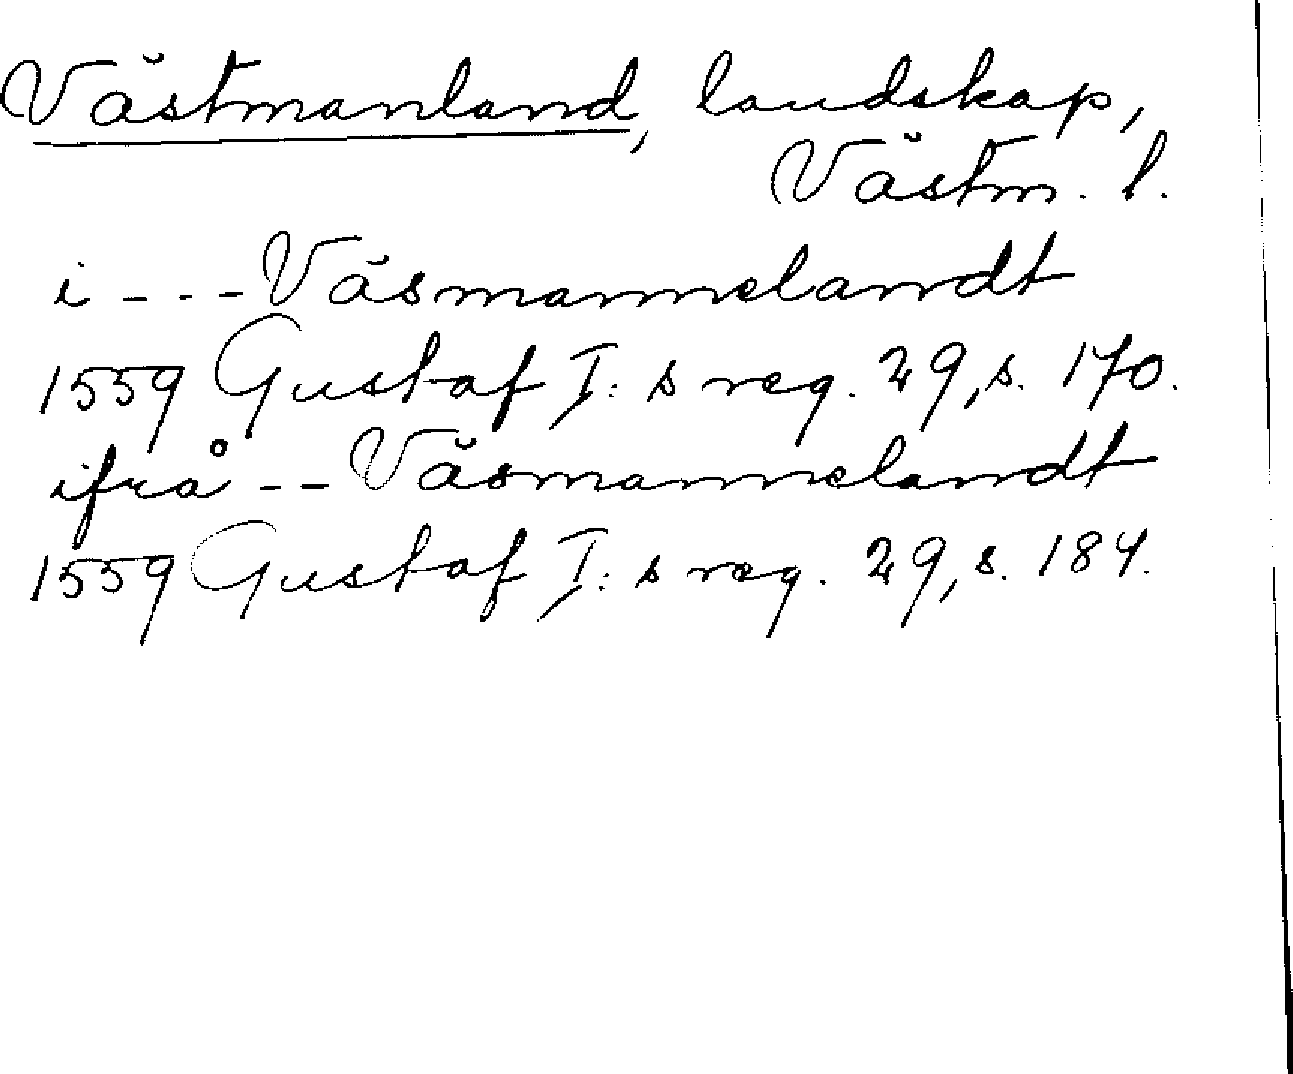 Västmanland, landskap,
Västm. l.
i - - - Väsmannelandt
1559 Gustaf I: s reg. 29, s. 170.
ifrå - - Väsmannelandt
1559 Gustaf I: s reg. 29, s. 184.